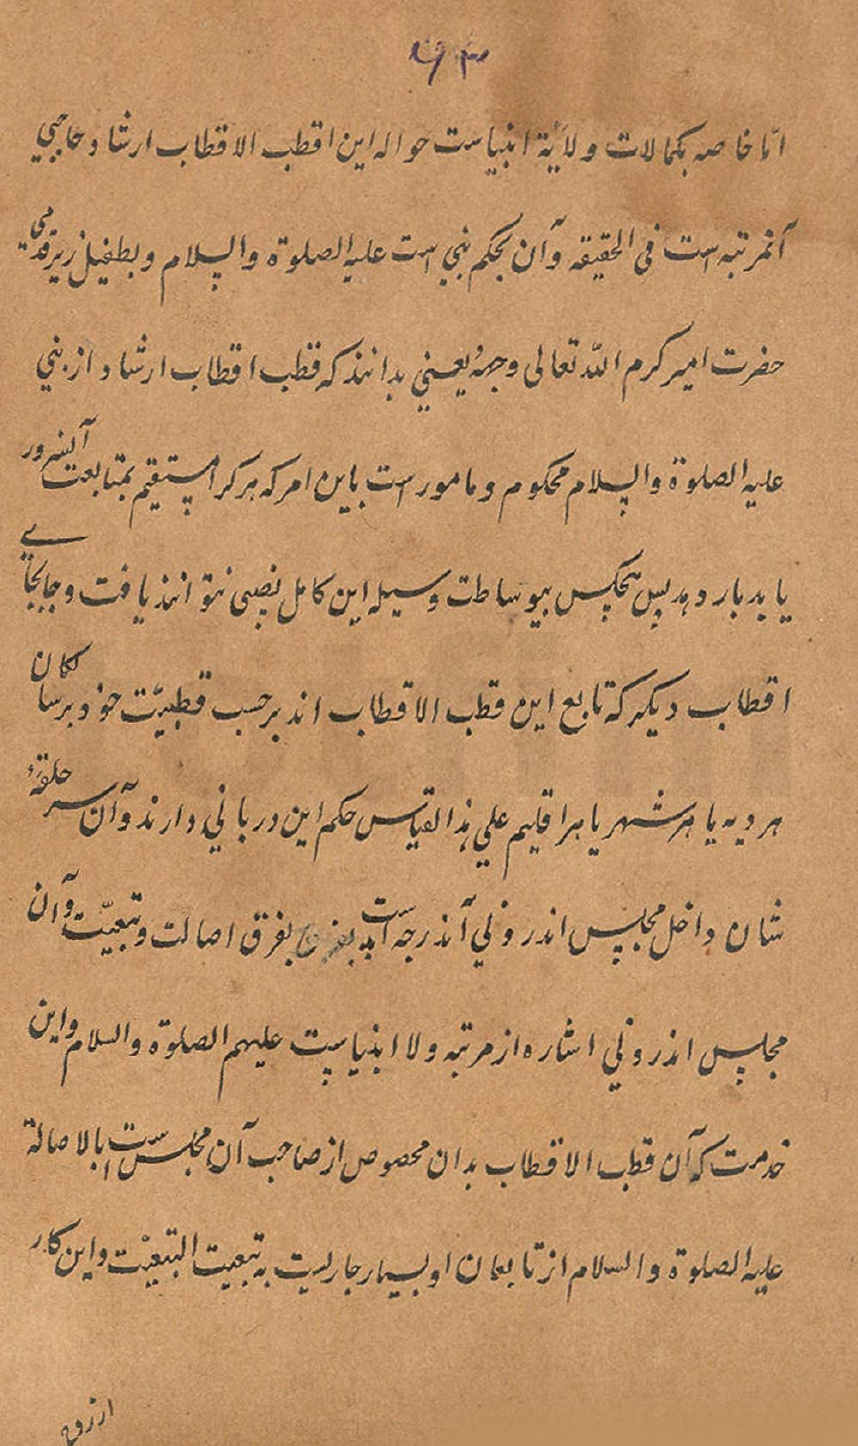 ۷۳
اما خاصه بکمالات ولایة انبیاست حواله این اقطب الاقطاب ارشاد حاجبی
آنمرتبه است فی الحقیقه وآن بحکم نبی است علیه الصلوة والسلام وبطفیل زیرقدمی
حضرت امیر کرم الله تعالی وجهه یعنی بدانند که قطب اقطاب ارشاد از نبی
علیه الصلوة والسلام محکوم ومامور است باین امر که هرکرا مستقیم بمتابعت آنسرور
یابد بار دهد پس هیچکس بیوساطت وسیله این کامل فیضی نتوانند یافت وجابجای
اقطاب دیگر که تابع این قطب الاقطاب اند برحسب قطبیّت خود برساکنان
هر دیه یا هر شهر یا هر اقلیم علی هذا القیاس حکم این دربانی دارند وآن سرحلقهٔ
شان داخل مجلس اندرونی آندرجه است بفرق اصالت وتبعیّت وآن
مجلس اندرونی اشاره از مرتبه ولا انبیاست علیهم الصلوة والسلام واین
خدمت که آن قطب الاقطاب بدان مخصوص از صاحب آن مجلس است بالاصالة
علیه الصلوة والسلام از تابعان او بسیار جاریست به تبعیت التبعیّت واین کار